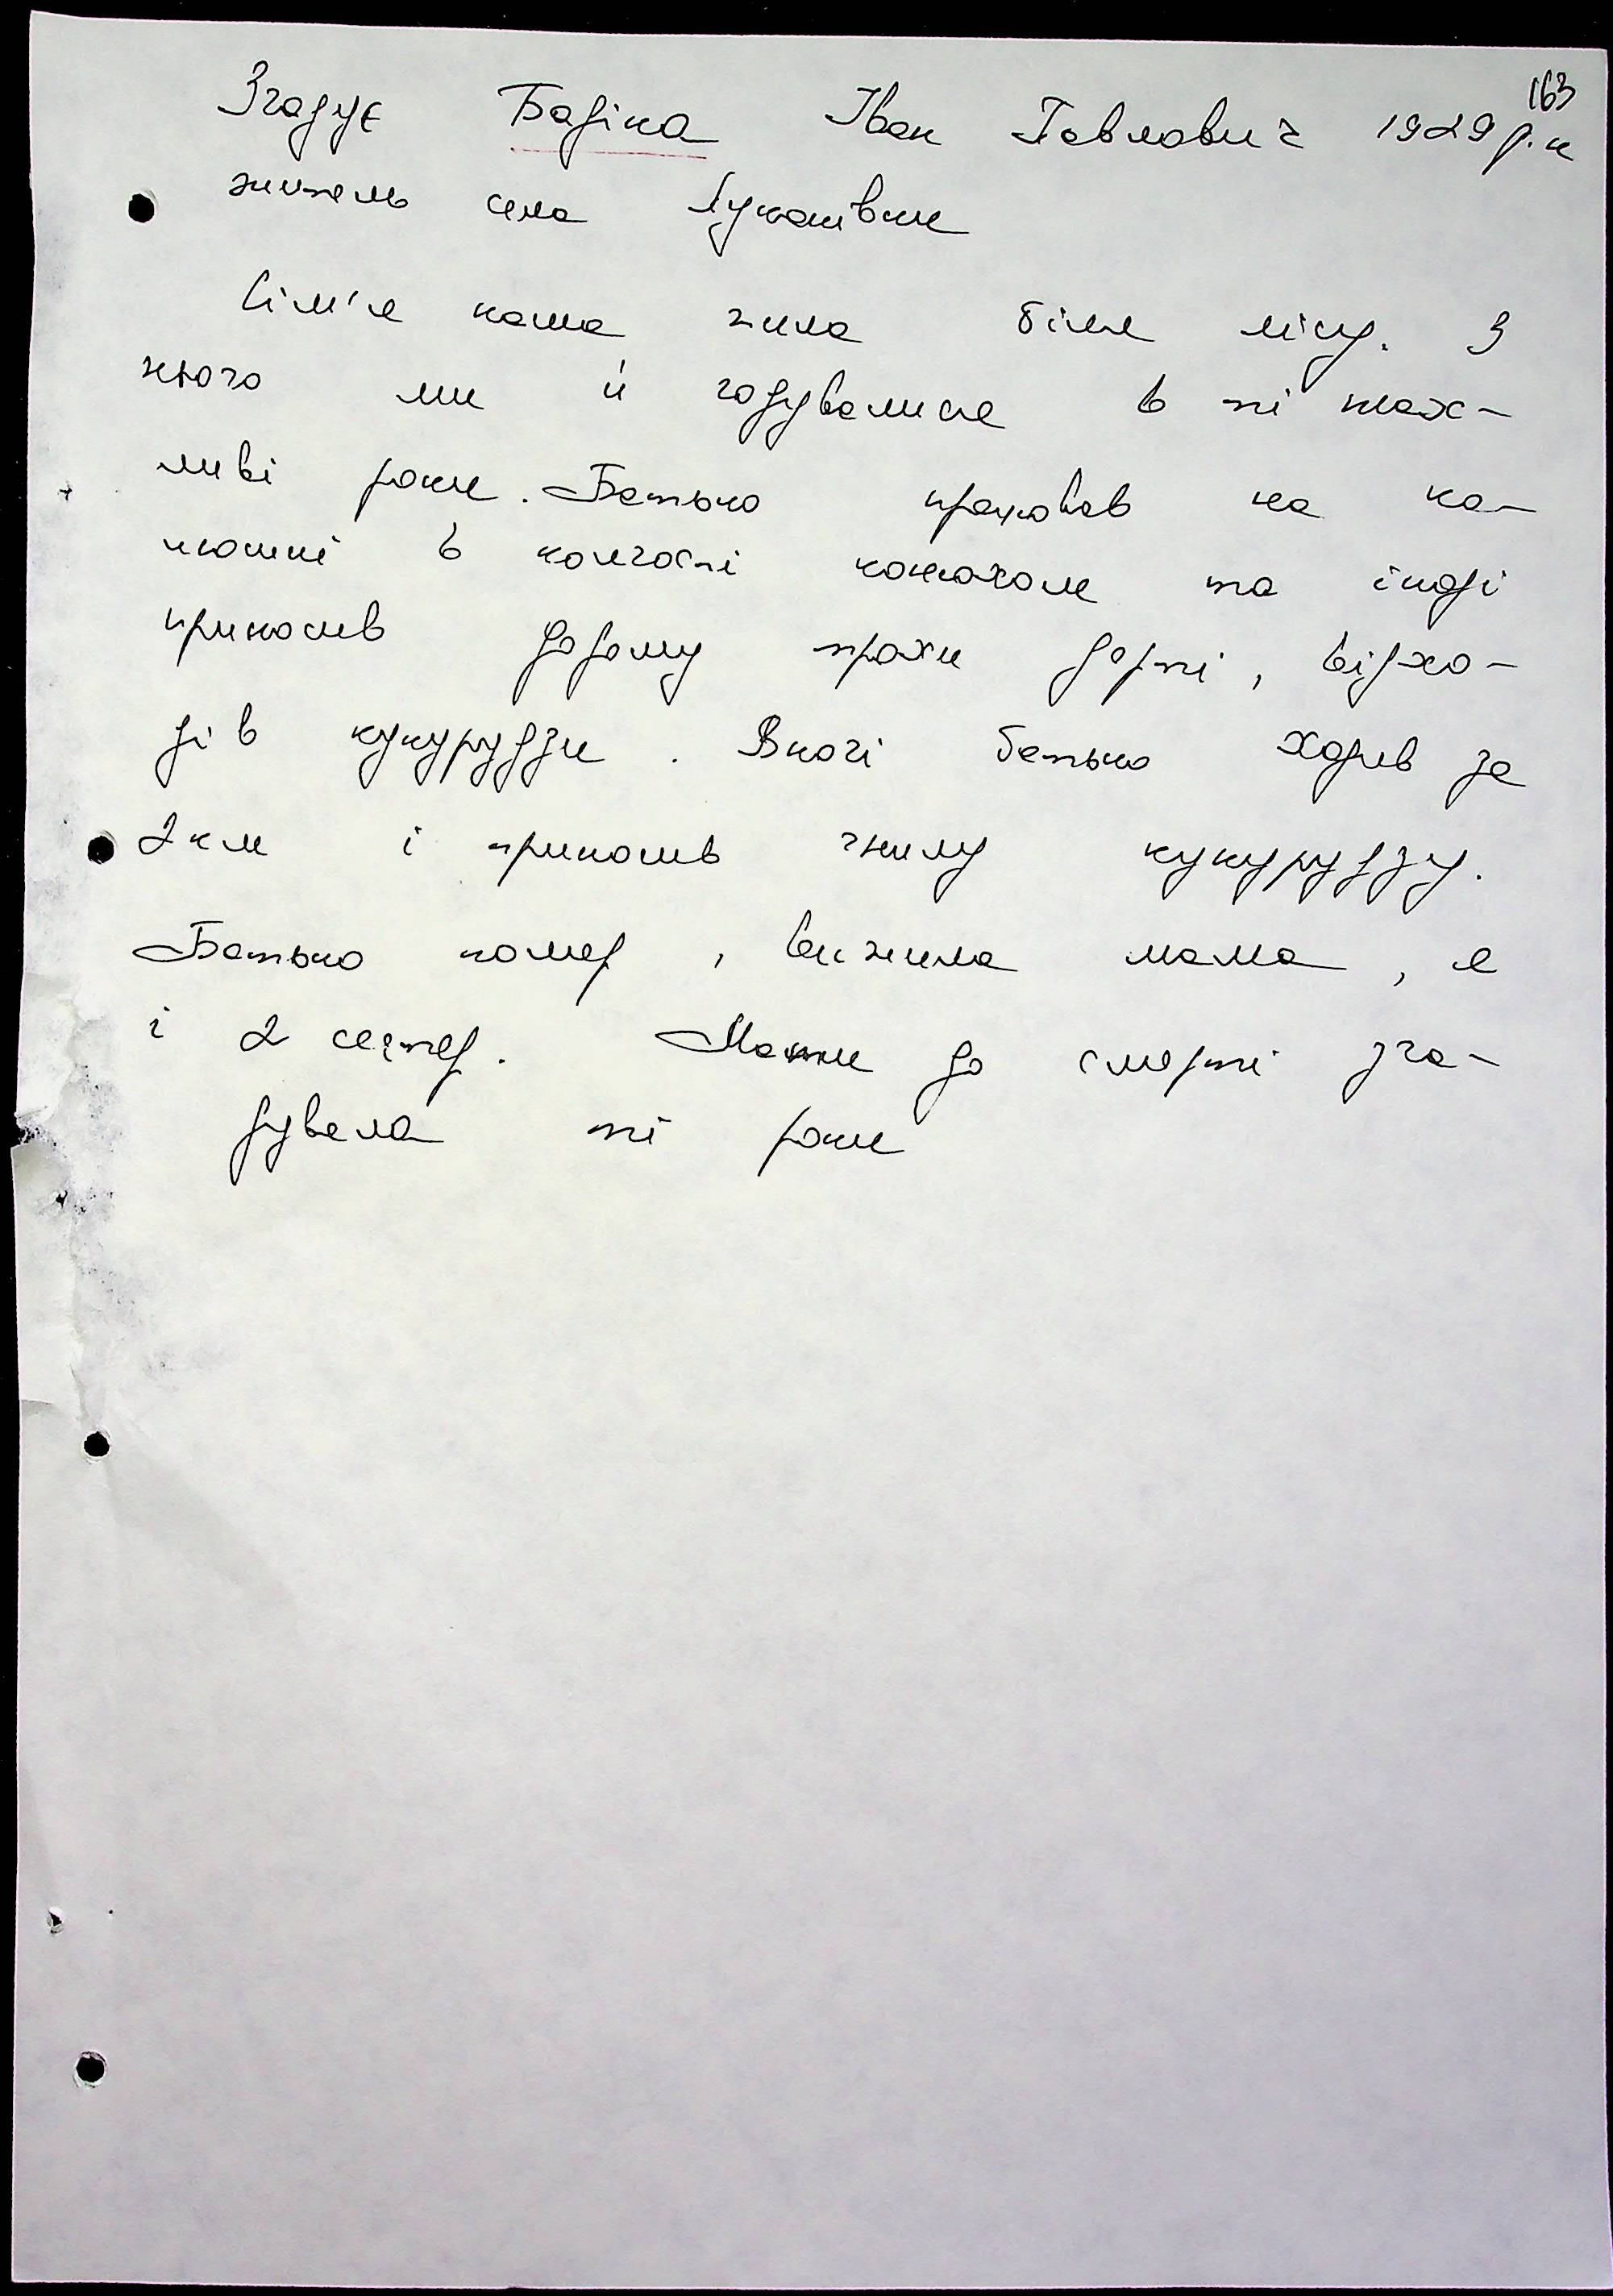 163
Згадує Бадіка Іван Павлович 1929 р.н
житель села Лукашівки
Сім'я наша жила біля лісу. З
нього ми й годувалися в ті жах-
ливі роки. Батько працював на ко-
нюшні в колгоспі конюхом та іноді
приносив додому трохи дерті, відхо-
дів кукурудзи. Вночі батько ходив за
2 км і приносив гнилу кукурудзу.
Батько помер, вижила мама, я
і 2 сестер. Мати до смерті зга-
дувала ті роки